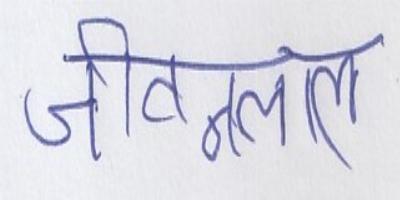 जीवनलाल